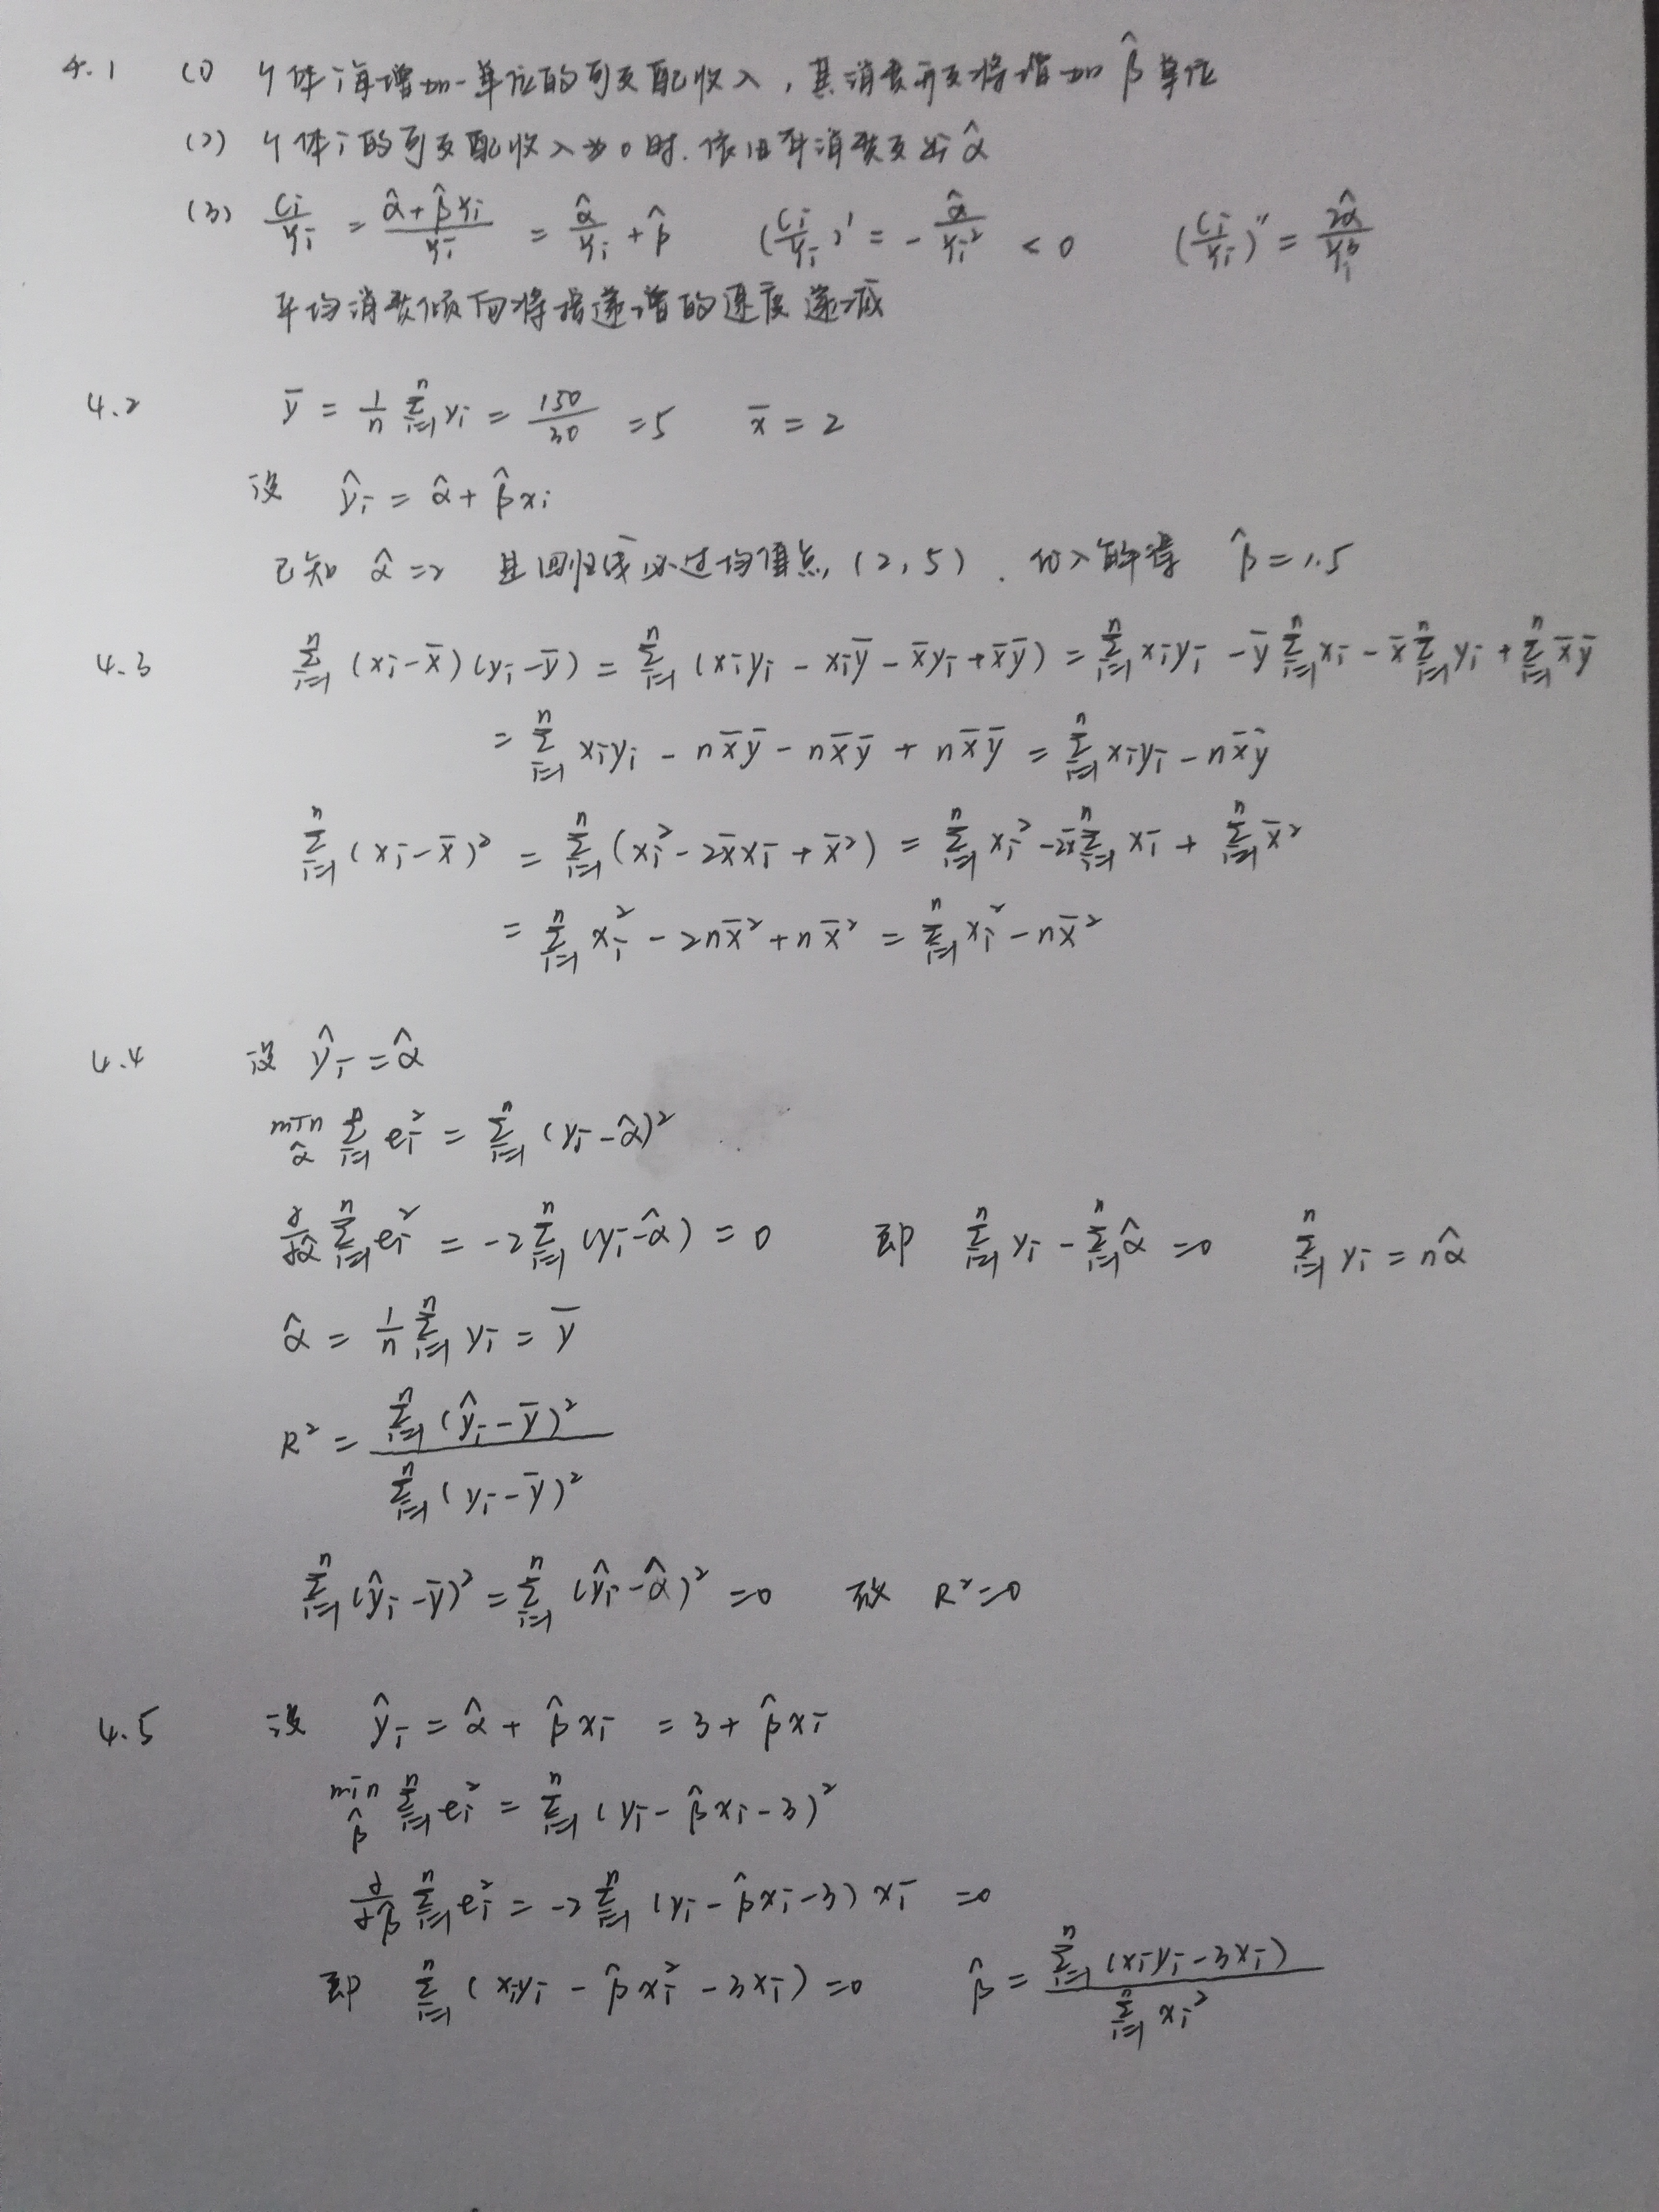 4.1 (1) 个体i每增加一单位的可支配收入，其消费开支将增加 β̂ 单位
(2) 个体i的可支配收入为0时，依旧有消费支出 α̂
(3) Ci/Yi = (α̂+β̂Yi)/Yi = α̂/Yi + β̂  (Ci/Yi)' = -α̂/Yi² < 0  (Ci/Yi)'' = 2α̂/Yi³
平均消费倾向将按递增的速度递减
4.2 ȳ = 1/n Σ(i=1→n) yi = 150/30 = 5  x̄ = 2
设 ŷi = α̂ + β̂xi
已知 α̂ = 2 且回归线必过均值点 (2, 5)，代入解得 β̂ = 1.5
4.3 Σ(i=1→n) (xi-x̄)(yi-ȳ) = Σ(i=1→n) (xiyi - xiȳ - x̄yi + x̄ȳ) = Σ(i=1→n) xiyi - ȳ Σ(i=1→n) xi - x̄ Σ(i=1→n) yi + Σ(i=1→n) x̄ȳ
= Σ(i=1→n) xiyi - nx̄ȳ - nx̄ȳ + nx̄ȳ = Σ(i=1→n) xiyi - nx̄ȳ
Σ(i=1→n) (xi-x̄)² = Σ(i=1→n) (xi² - 2x̄xi + x̄²) = Σ(i=1→n) xi² - 2x̄ Σ(i=1→n) xi + Σ(i=1→n) x̄²
= Σ(i=1→n) xi² - 2nx̄² + nx̄² = Σ(i=1→n) xi² - nx̄²
4.4 设 ŷi = α̂
min α̂ Σ(i=1→n) ei² = Σ(i=1→n) (yi-α̂)²
∂/∂α̂ Σ(i=1→n) ei² = -2 Σ(i=1→n) (yi-α̂) = 0  即 Σ(i=1→n) yi - Σ(i=1→n) α̂ = 0  Σ(i=1→n) yi = nα̂
α̂ = 1/n Σ(i=1→n) yi = ȳ
R² = Σ(i=1→n) (ŷi-ȳ)² / Σ(i=1→n) (yi-ȳ)²
Σ(i=1→n) (ŷi-ȳ)² = Σ(i=1→n) (ŷi-α̂)² = 0  故 R² = 0
4.5 设 ŷi = α̂ + β̂xi = 3 + β̂xi
min β̂ Σ(i=1→n) ei² = Σ(i=1→n) (yi - β̂xi - 3)²
∂/∂β̂ Σ(i=1→n) ei² = -2 Σ(i=1→n) (yi - β̂xi - 3) xi = 0
即 Σ(i=1→n) (xiyi - β̂xi² - 3xi) = 0  β̂ = Σ(i=1→n) (xiyi - 3xi) / Σ(i=1→n) xi²